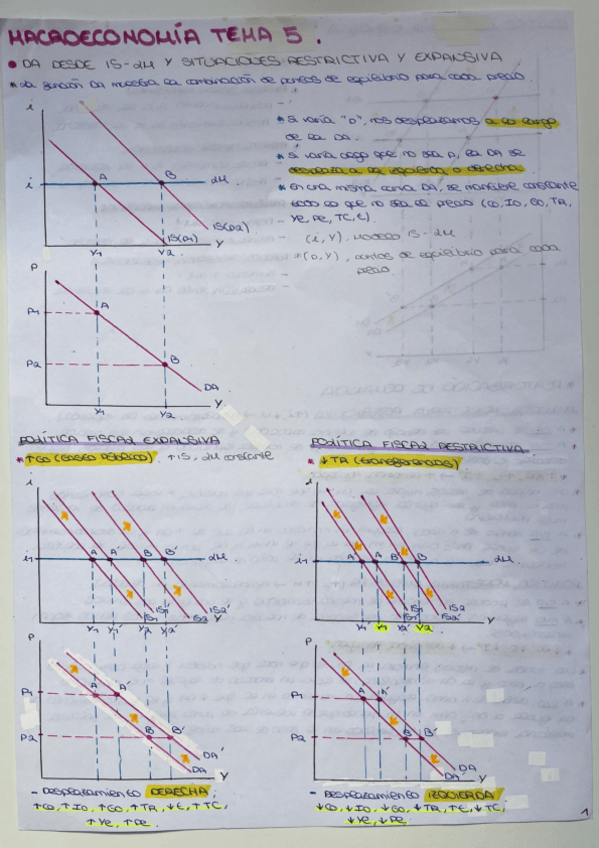 MACROECONOMÍA TEMA 5.
• DA DESDE IS-LM Y SITUACIONES RESTRICTIVA Y EXPANSIVA
* La función DA muestra la combinación de puntos de equilibrio para cada precio.
i
A
B
LM
i
IS(P2)
IS(P1)
Y
Y1
Y2
* Si varía "P", nos desplazamos a lo largo
de la DA.
* Si varía algo que no sea P, la DA se
desplaza a la izquierda o derecha.
* En una misma curva DA, se mantiene constante
todo lo que no sea el precio (C0, I0, G0, TR,
Ye, Pe, TC, t).
(i, Y), modelo IS-LM
*(P, Y), puntos de equilibrio para cada
precio.
P
P1
A
P2
B
DA
Y1
Y2
Y
POLÍTICA FISCAL EXPANSIVA
* ↑G0 (GASTO PÚBLICO). ↑IS, LM constante
i
i1
A
A'
B
B'
LM
IS1
IS1'
IS2
IS2'
Y1
Y1'
Y2
Y2'
Y
P
P1
A
A'
P2
B
B'
DA'
DA
Y
- Desplazamiento DERECHA:
↑C0, ↑I0, ↑G0, ↑TR, ↓t, ↑TC,
↑Ye, ↑Pe.
POLÍTICA FISCAL RESTRICTIVA
* ↓TR (transferencias)
i1
A
A
B'
B
LM
IS2
IS2'
IS1
IS1'
Y1
Y2'
Y2
Y
P
P1
A
A'
P2
B
B'
DA
DA'
Y
- Desplazamiento IZQUIERDA:
↓C0, ↓I0, ↓G0, ↓TR, ↑t, ↓TC,
↓Ye, ↓Pe.
1